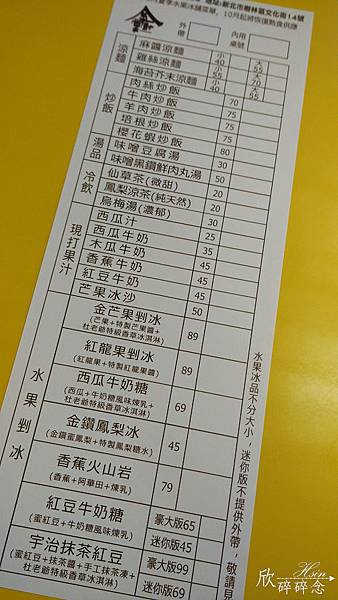 夏季水果冰鋪菜單，10月起將恢復熱食供應
地址:新北市樹林區文化街14號
外帶
內用桌號
涼麵
麻醬涼麵 小40 大55
雞絲涼麵 小55 大70
海苔芥末涼麵 小40 大55
炒飯
肉絲炒飯 70
牛肉炒飯 75
羊肉炒飯 75
培根炒飯 75
櫻花蝦炒飯 80
湯品
味噌豆腐湯 30
味噌黑鑽鮮肉丸湯 50
冷飲
仙草茶(微甜) 20
鳳梨涼茶(純天然) 20
烏梅湯(濃郁) 30
現打果汁
西瓜汁 25
西瓜牛奶 35
木瓜牛奶 45
香蕉牛奶 45
紅豆牛奶 45
芒果冰沙 50
水果剉冰
金芒果剉冰 89
(芒果+特製芒果醬+
杜老爺特級香草冰淇淋)
紅龍果剉冰 89
(紅龍果+特製紅龍果醬)
西瓜牛奶糖 69
(西瓜+牛奶糖風味煉乳+
杜老爺特級香草冰淇淋)
金鑽鳳梨冰 45
(金鑽蜜鳳梨+特製鳳梨糖水)
香蕉火山岩 79
(香蕉+阿華田+煉乳)
紅豆牛奶糖 豪大版65
(蜜紅豆+牛奶糖風味煉乳) 迷你版45
宇治抹茶紅豆 豪大版99
(蜜紅豆+抹茶醬+手工抹茶凍+
杜老爺特級香草冰淇淋) 迷你版69
水果冰品不分大小，迷你版不提供外帶，敬請見
欣碎碎念
Hsin